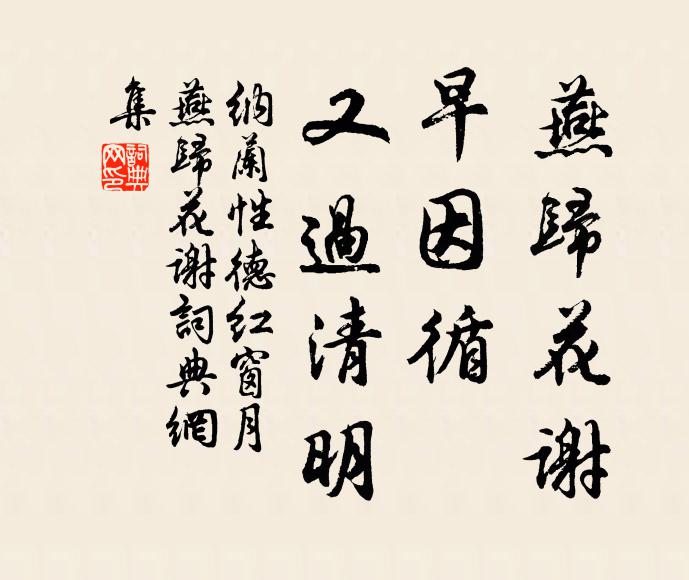 燕歸花謝
早因循
又過清明
納蘭性德紅窗月
燕歸花謝詞典網
集
詞典
网印